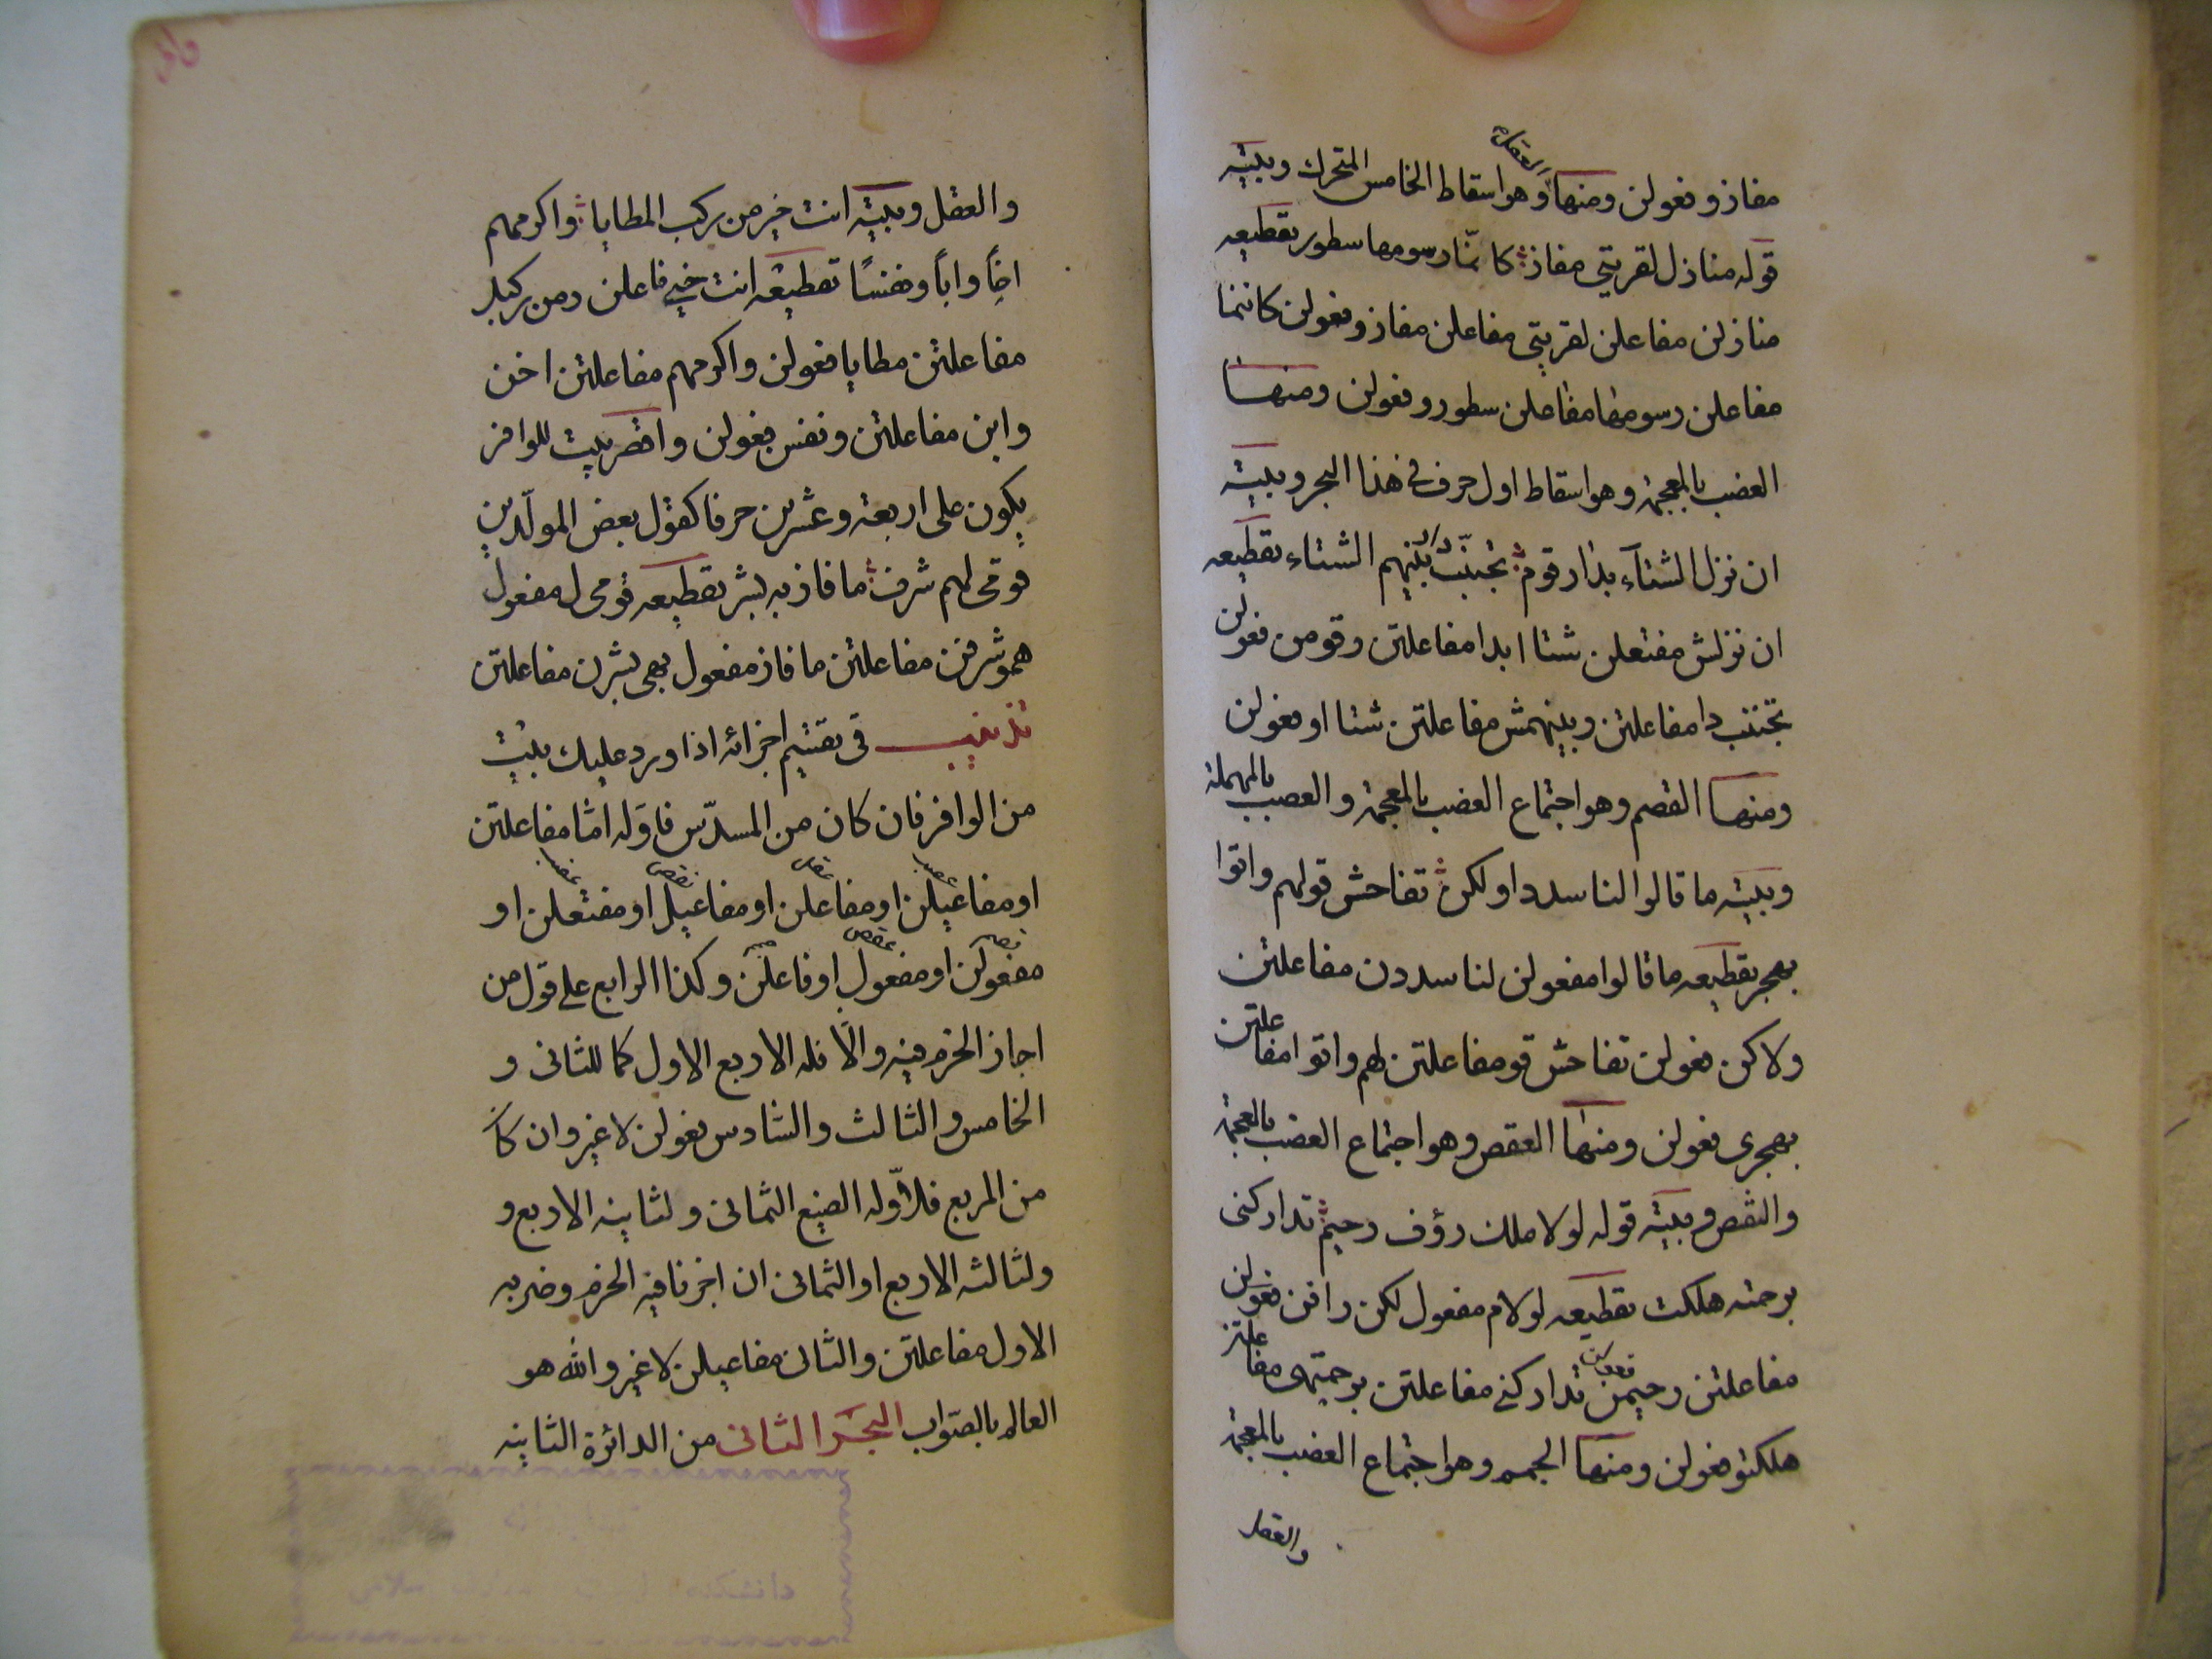 مفازو فعولن ومنها العقل وهو اسقاط الخامس المتحرك وبيته
قوله منازل لقربتي مفاز كانّما رسومها سطور تقطيعه
منازلن مفاعلن لقربتي مفاعلن مفازو فعولن كاننما
مفاعلن رسومها مفاعلن سطورو فعولن ومنها
العضب بالمعجمة وهو اسقاط اول حرف في هذا البحر وبيته
ان نزل الشتآء بدار قوم تجنّب دار بيتهم الشتاء تقطيعه
ان نزلش مفتعلن شتا ابدا مفاعلتن رقومن فعولن
تجننب دا مفاعلتن ربيتهمش مفاعلتن شتا او فعولن
ومنها القصم وهو اجتماع العضب بالمعجمة والعصب بالمهملة
وبيته ما قالوا لنا سددا ولكن تفاحش قولهم واتوا
بهجر تقطيعه ما قالوا مفعولن لنا سددن مفاعلتن
ولاكن فعولن تفاحش قو مفاعلتن لهم واتوا مفاعلتن
بهجرى فعولن ومنها العقص وهو اجتماع العضب بالمعجمة
والنقص وبيته قوله لولا ملك رؤف رحيم تداركنى
برحمته هلكت تقطيعه لولام مفعول لكن رافن فعولن
مفاعلتن رحيمن فعولن تداركني مفاعلتن برحمتهى مفاعلتن
هلكتو فعولن ومنها الجمم وهو اجتماع العضب بالمعجمة
والعقل
والعقل وبيته انت خير من ركب المطايا واكرمهم
اخاً واباً ونفسًا تقطيعه انت خي فاعلن رمن ركبل
مفاعلتن مطايا فعولن واكرمهم مفاعلتن اخن
وابن مفاعلتن ونفس فعولن واقصر بيت للوافر
يكون على اربعة وعشرين حرفا كقول بعض المولّدين
قومى لهم شرف ما فاز به بشر تقطيعه قومى له مفعول
همو شرفن مفاعلتن ما فاز مفعول بهى بشرن مفاعلتن
تذنيب فى تقسيم اجزائه اذا ورد عليك بيت
من الوافر فان كان من المسدّس فاوله امّا مفاعلتن
او مفاعيلن عصب او مفاعلن عقل او مفاعيل نقص او مفتعلن عضب او
مفعولن قصم او مفعول عقص او فاعلن جمم وكذا الرابع على قول من
اجاز الخرم فيه والّا فله الاربع الاول كما للثانى و
الخامس والثالث والسّادس فعولن لا غير وان كان
من المربع فلاوّله الصيغ الثمانى ولثانيه الاربع و
ولثالثه الاربع او الثمانى ان اجزنا فيه الخرم وضربه
الاول مفاعلتن والثانى مفاعيلن لا غير والله هو
العالم بالصّواب البحر الثانى من الدائرة الثانيه